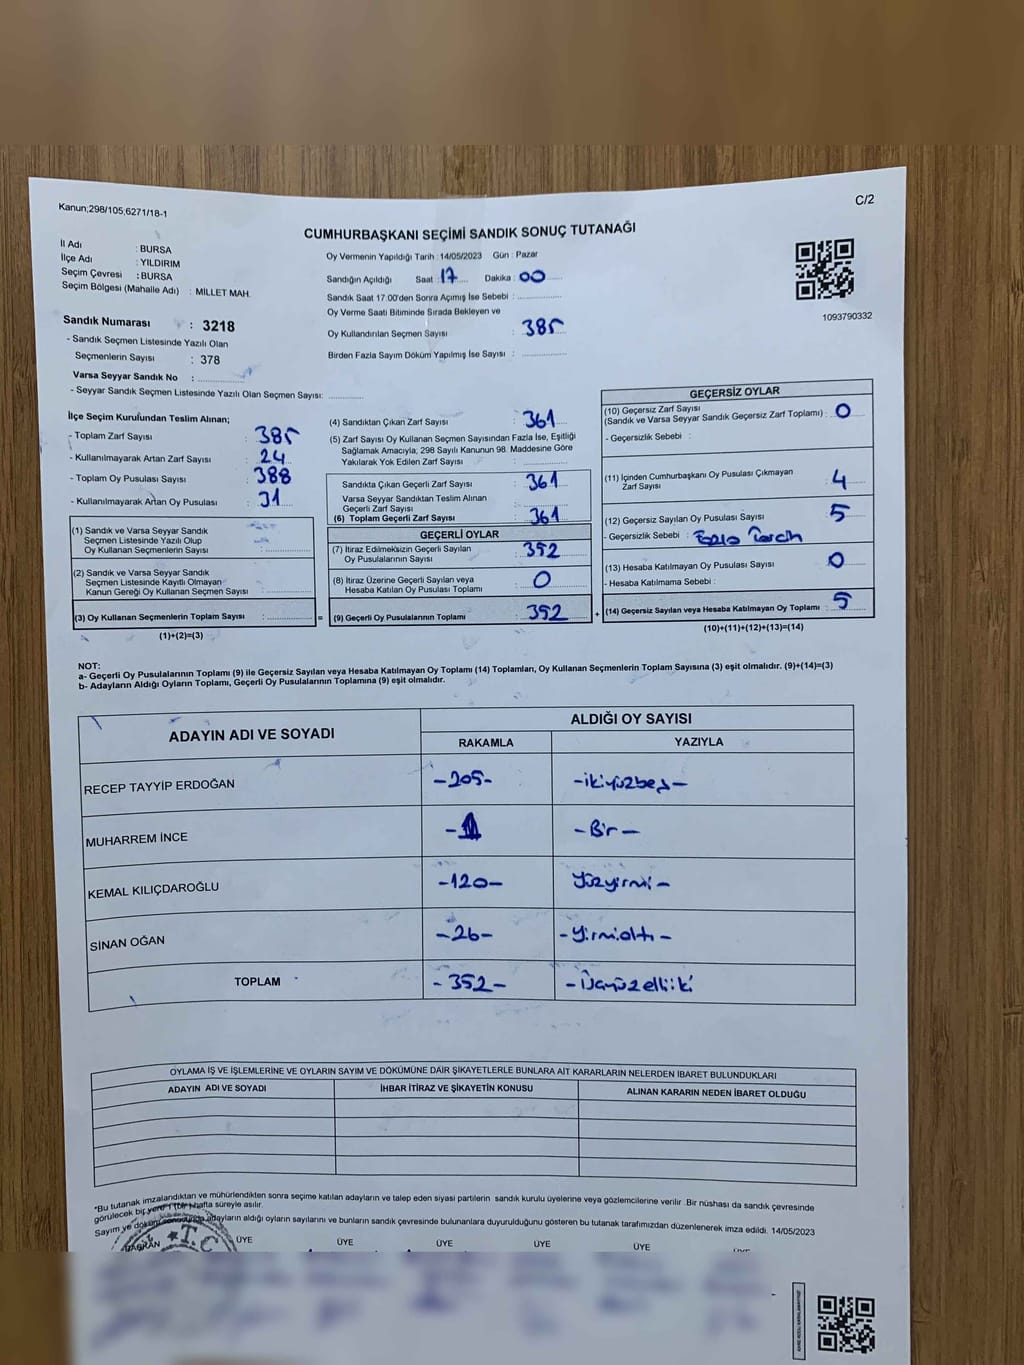 Kanun;298/105,6271/18-1
C/2
CUMHURBAŞKANI SEÇİMİ SANDIK SONUÇ TUTANAĞI
İl Adı : BURSA
İlçe Adı : YILDIRIM
Seçim Çevresi : BURSA
Seçim Bölgesi (Mahalle Adı) : MILLET MAH.
Sandık Numarası : 3218
- Sandık Seçmen Listesinde Yazılı Olan
Seçmenlerin Sayısı : 378
Varsa Seyyar Sandık No :
- Seyyar Sandık Seçmen Listesinde Yazılı Olan Seçmen Sayısı:
Oy Vermenin Yapıldığı Tarih : 14/05/2023 Gün : Pazar
Sandığın Açıldığı Saat : 17 Dakika : 00
Sandık Saat 17.00'den Sonra Açımış İse Sebebi :
Oy Verme Saati Bitiminde Sırada Bekleyen ve
Oy Kullandırılan Seçmen Sayısı : 385
Birden Fazla Sayım Döküm Yapılmış İse Sayısı :
1093790332
İlçe Seçim Kurulundan Teslim Alınan;
- Toplam Zarf Sayısı : 385
- Kullanılmayarak Artan Zarf Sayısı : 24
- Toplam Oy Pusulası Sayısı : 388
- Kullanılmayarak Artan Oy Pusulası : 31
(1) Sandık ve Varsa Seyyar Sandık
Seçmen Listesinde Yazılı Olup
Oy Kullanan Seçmenlerin Sayısı :
(2) Sandık ve Varsa Seyyar Sandık
Seçmen Listesinde Kayıtlı Olmayan
Kanun Gereği Oy Kullanan Seçmen Sayısı :
(3) Oy Kullanan Seçmenlerin Toplam Sayısı : =
(1)+(2)=(3)
(4) Sandıktan Çıkan Zarf Sayısı : 361
(5) Zarf Sayısı Oy Kullanan Seçmen Sayısından Fazla İse, Eşitliği
Sağlamak Amacıyla; 298 Sayılı Kanunun 98. Maddesine Göre
Yakılarak Yok Edilen Zarf Sayısı :
Sandıkta Çıkan Geçerli Zarf Sayısı : 361
Varsa Seyyar Sandıktan Teslim Alınan
Geçerli Zarf Sayısı :
(6) Toplam Geçerli Zarf Sayısı : 361
GEÇERLİ OYLAR
(7) İtiraz Edilmeksizin Geçerli Sayılan
Oy Pusulalarının Sayısı : 352
(8) İtiraz Üzerine Geçerli Sayılan veya
Hesaba Katılan Oy Pusulası Toplamı : 0
(9) Geçerli Oy Pusulalarının Toplamı : 352 +
GEÇERSİZ OYLAR
(10) Geçersiz Zarf Sayısı
(Sandık ve Varsa Seyyar Sandık Geçersiz Zarf Toplamı) : 0
- Geçersizlik Sebebi :
(11) İçinden Cumhurbaşkanı Oy Pusulası Çıkmayan
Zarf Sayısı : 4
(12) Geçersiz Sayılan Oy Pusulası Sayısı : 5
- Geçersizlik Sebebi : Fazla Tercih
(13) Hesaba Katılmayan Oy Pusulası Sayısı : 0
- Hesaba Katılmama Sebebi :
(14) Geçersiz Sayılan veya Hesaba Katılmayan Oy Toplamı : 5
(10)+(11)+(12)+(13)=(14)
NOT:
a- Geçerli Oy Pusulalarının Toplamı (9) ile Geçersiz Sayılan veya Hesaba Katılmayan Oy Toplamı (14) Toplamları, Oy Kullanan Seçmenlerin Toplam Sayısına (3) eşit olmalıdır. (9)+(14)=(3)
b- Adayların Aldığı Oyların Toplamı, Geçerli Oy Pusulalarının Toplamına (9) eşit olmalıdır.
ADAYIN ADI VE SOYADI
ALDIĞI OY SAYISI
RAKAMLA YAZIYLA
RECEP TAYYİP ERDOĞAN -205- -ikiyüzbeş-
MUHARREM İNCE -1 -Bir-
KEMAL KILIÇDAROĞLU -120- Yüzyirmi-
SİNAN OĞAN -26- -Yirmialtı-
TOPLAM -352- -Üçyüzelliiki
OYLAMA İŞ VE İŞLEMLERİNE VE OYLARIN SAYIM VE DÖKÜMÜNE DAİR ŞİKAYETLERLE BUNLARA AİT KARARLARIN NELERDEN İBARET BULUNDUKLARI
ADAYIN ADI VE SOYADI İHBAR İTİRAZ VE ŞİKAYETİN KONUSU ALINAN KARARIN NEDEN İBARET OLDUĞU
*Bu tutanak imzalandıktan ve mühürlendikten sonra seçime katılan adayların ve talep eden siyasi partilerin sandık kurulu üyelerine veya gözlemcilerine verilir. Bir nüshası da sandık çevresinde
görülecek bir yere 1 (bir) hafta süreyle asılır.
Sayım ve döküm sonucunda adayların aldığı oyların sayılarını ve bunların sandık çevresinde bulunanlara duyurulduğunu gösteren bu tutanak tarafımızdan düzenlenerek imza edildi. 14/05/2023
BAŞKAN ÜYE ÜYE ÜYE ÜYE ÜYE ÜYE
T.C